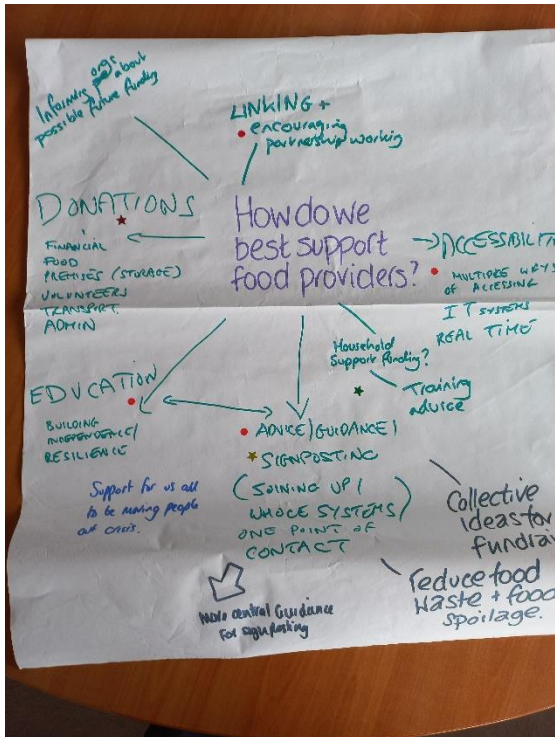 Informing orgs about
possible future funding
LINKING +
encouraging
partnership working
DONATIONS
FINANCIAL
FOOD
PREMISES (STORAGE)
VOLUNTEERS
TRANSPORT
ADMIN
How do we
best support
food providers?
ACCESSABILIT
MULTIPLE WAYS
OF ACCESSING
IT SYSTEMS
REAL TIME
Household
Support funding?
Training
advice
EDUCATION
BUILDING
INDEPENDENCE/
RESILIENCE
ADVICE/GUIDANCE/
SIGNPOSTING
(JOINING UP/
WHOLE SYSTEMS)
ONE POINT OF
CONTACT
Support for us all
to be moving people
out crisis.
More central Guidance
for signposting
Collective
ideas for
fundrai
reduce food
waste + food
spoilage.